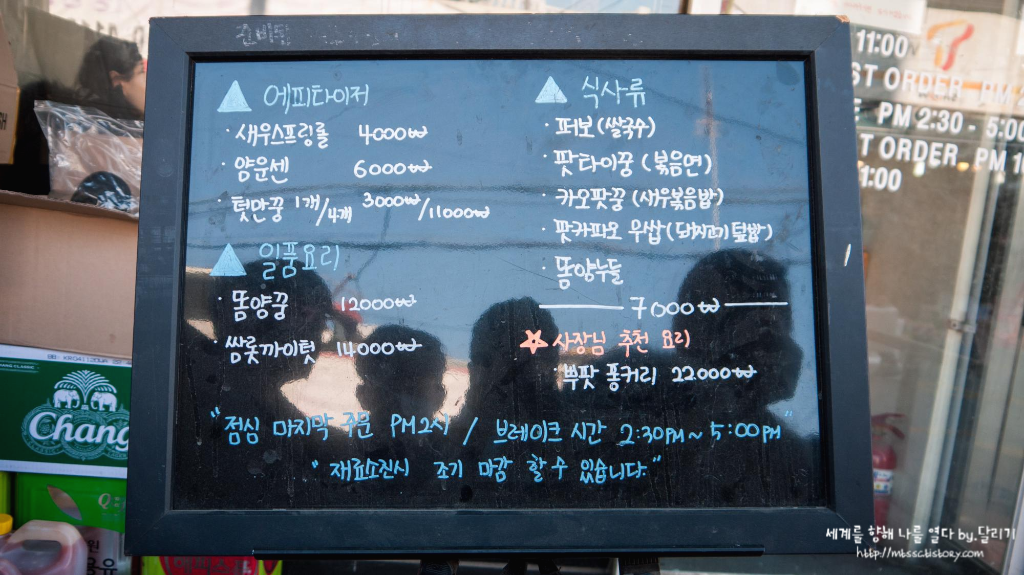 준비된
▲ 에피타이저
· 새우스프링롤 4000₩
· 얌운센 6000₩
· 텃만꿍 1개/4개 3000₩/11000₩
▲ 일품요리
· 똠양꿍 12000₩
· 쌈롯까이텃 14000₩
▲ 식사류
· 퍼보(쌀국수)
· 팟타이꿍 (볶음면)
· 카오팟꿍 (새우볶음밥)
· 팟카파오 우쌉(돼지고기덮밥)
· 똠양누들
7000₩
☆ 사장님 추천 요리
· 뿌팟 퐁커리 22000₩
"점심 마지막 주문 PM 2시 / 브레이크 시간 2:30PM ~ 5:00PM"
"재료소진시 조기 마감 할 수 있습니다."
11:00
ST ORDER PM 2
PM 2:30 - 5:00
ST ORDER PM 1
1:00
Chang
세계를 향해 나를 열다 by.달리기